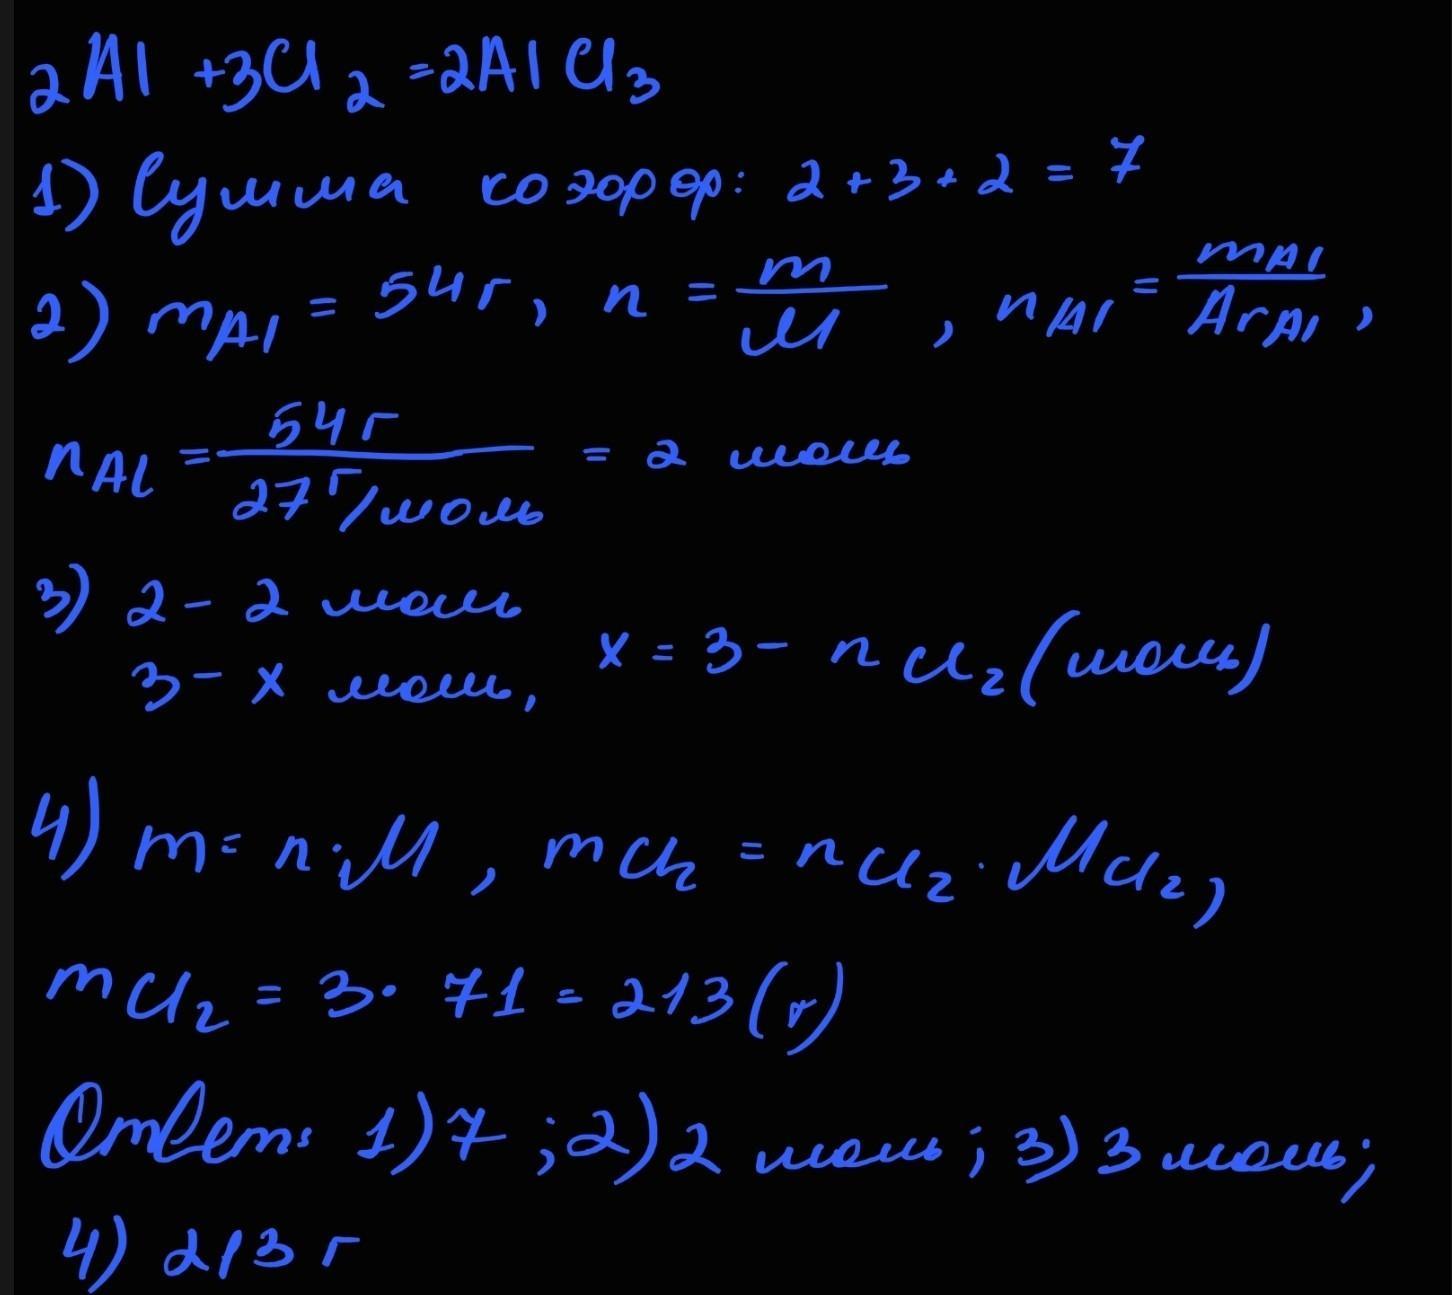 2Al + 3Cl₂ = 2AlCl₃
1) Сумма коэфф: 2 + 3 + 2 = 7
2) m Al = 54 г, n = m/M, n Al = m Al/Ar Al,
n Al = 54 г/27 г/моль = 2 моль
3) 2 - 2 моль
3 - x моль, x = 3 - n Cl₂ (моль)
4) m = n · M, m Cl₂ = n Cl₂ · M Cl₂,
m Cl₂ = 3 · 71 = 213 (г)
Ответ: 1) 7; 2) 2 моль; 3) 3 моль;
4) 213 г